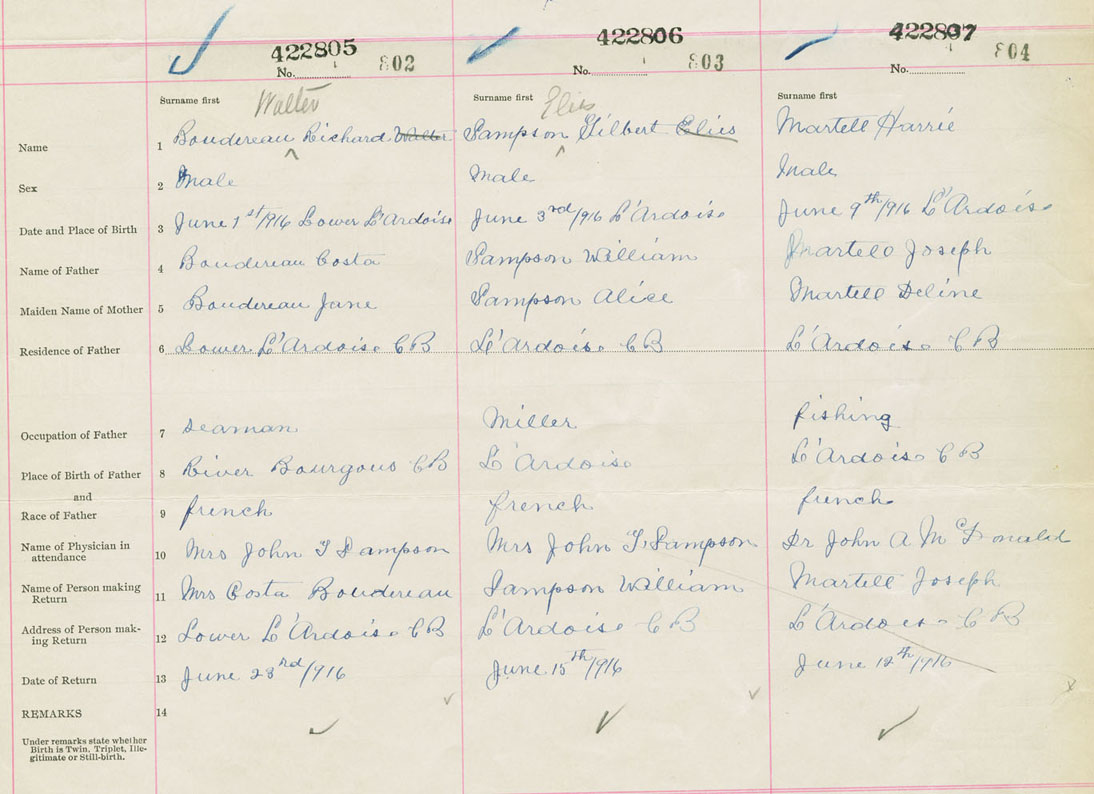 422805 422806 422807
No. 802 No. 803 No. 804
Surname first Walter Surname first Elies Surname first
Name 1 Boudereau Richard Walter Sampson Gilbert Elies Martell Harrie
Sex 2 Male Male Male
Date and Place of Birth 3 June 1st/916 Lower L'Ardoise June 3rd/916 L'Ardoise June 9th/916 L'Ardoise
Name of Father 4 Boudereau Costa Sampson William Martell Joseph
Maiden Name of Mother 5 Boudereau Jane Sampson Alice Martell Deline
Residence of Father 6 Lower L'Ardoise CB L'Ardoise CB L'Ardoise CB
Occupation of Father 7 Seaman Miller fishing
Place of Birth of Father 8 River Bourgous CB L'Ardoise L'Ardoise CB
and
Race of Father 9 french french french
Name of Physician in
attendance 10 Mrs John T Sampson Mrs John T. Sampson Dr John A McDonald
Name of Person making
Return 11 Mrs Costa Boudereau Sampson William Martell Joseph
Address of Person mak-
ing Return 12 Lower L'Ardoise CB L'Ardoise CB L'Ardoise CB
Date of Return 13 June 23rd/916 June 15th/916 June 12th/916
REMARKS 14
Under remarks state whether
Birth is Twin, Triplet, Ille-
gitimate or Still-birth.